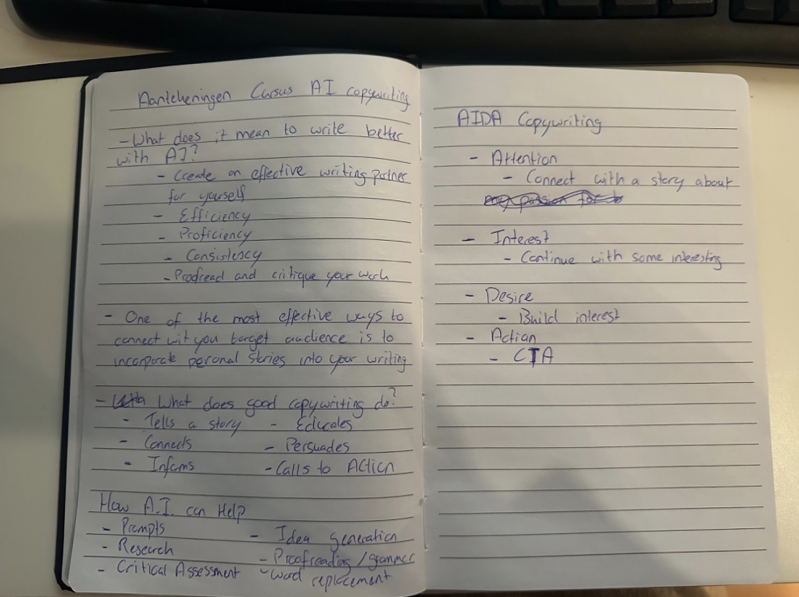 Aantekeningen Cursus AI copywriting
- What does it mean to write better
with AI?
- Create an effective writing partner
for yourself
- Efficiency
- Proficiency
- Consistency
- Proofread and critique your work
- One of the most effective ways to
connect wit you target audience is to
incorporate personal stories into your writing
- What does good copywriting do?
- Tells a story - Educates
- Connects - Persuades
- Informs - Calls to Action
How A.I. can Help
- Prompts - Idea generation
- Research - Proofreading / grammer
- Critical Assessment - word replacement
AIDA Copywriting
- Attention
- Connect with a story about
- Interest
- Continue with some interesting
- Desire
- Build interest
- Action
- CTA